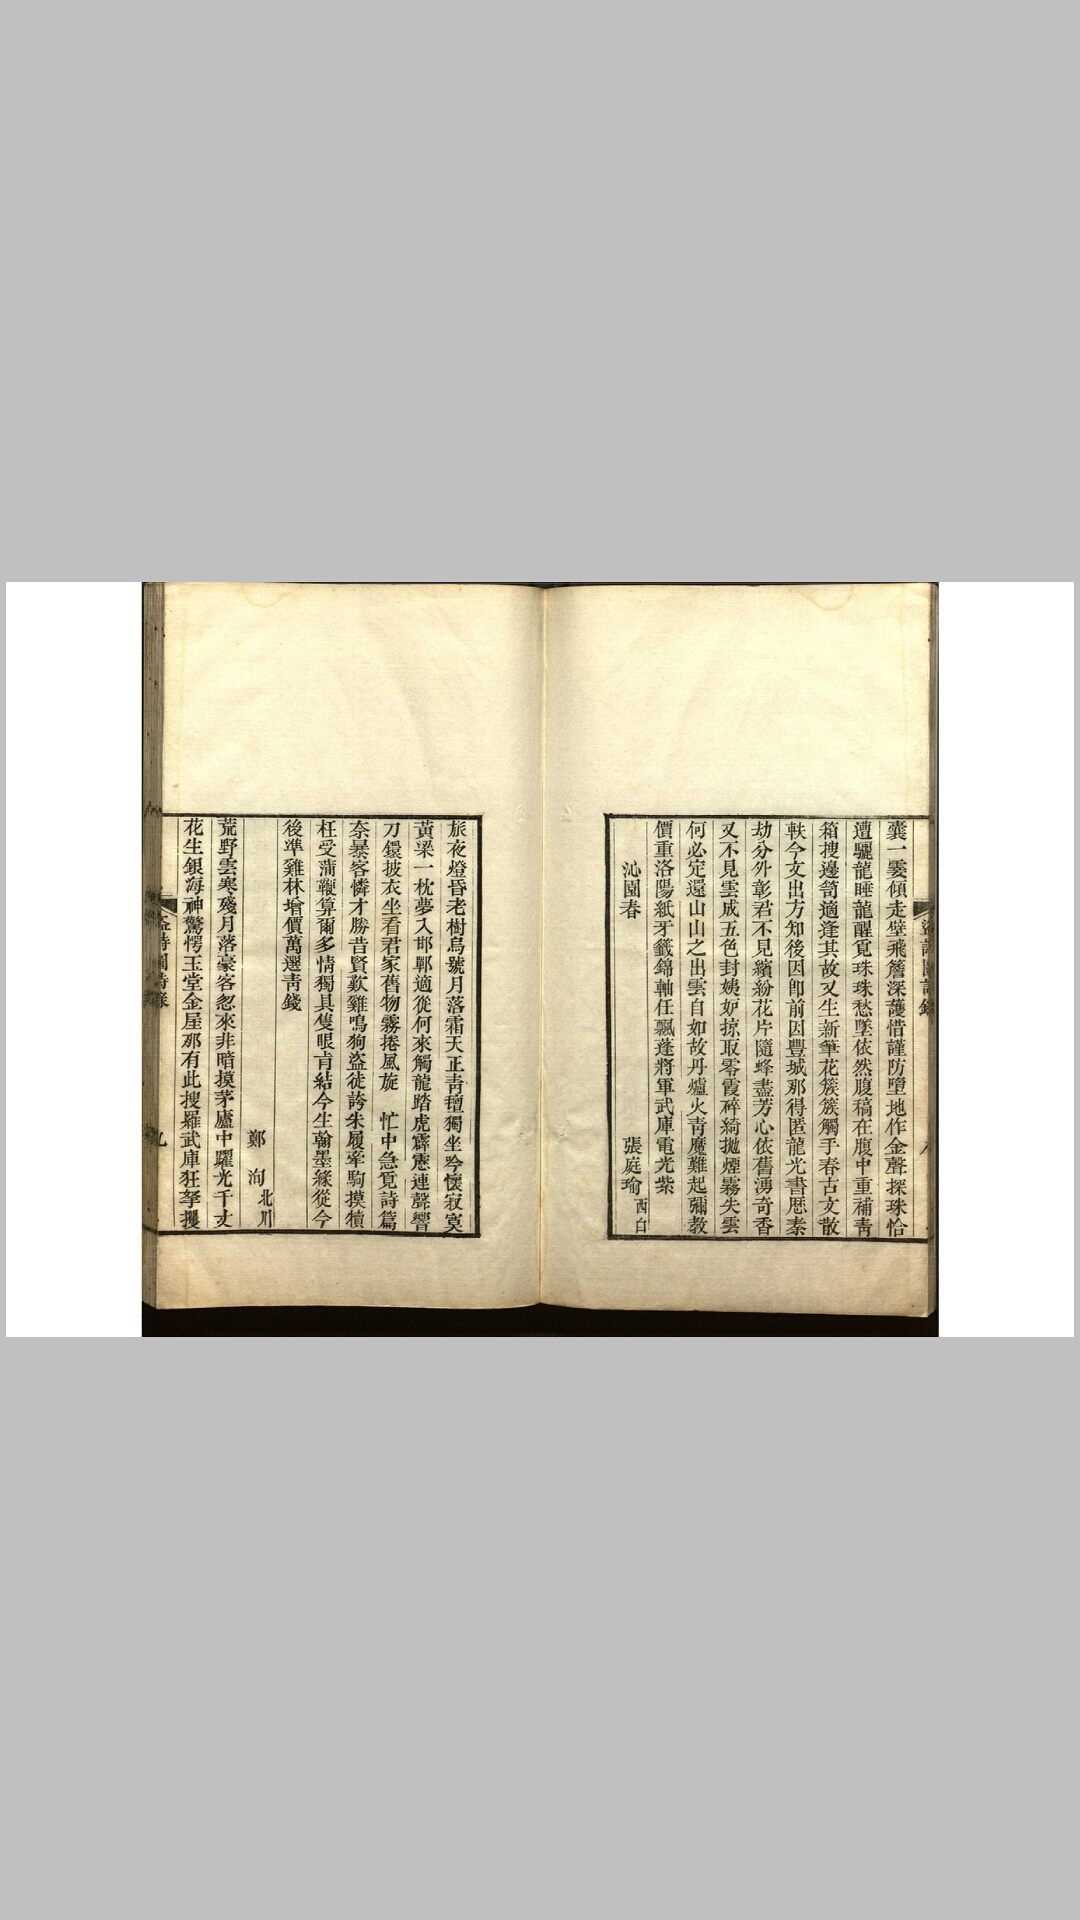 盜詩圖詩錄
囊一霎傾走壁飛簷深護惜謹防墮地作金聲探珠恰
遭驪龍睡龍醒覓珠珠愁墜依然腹稿在腹中重補靑
箱搜邊笥適逢其故又生新筆花簇簇觸手春古文散
軼今文出方知後因卽前因豐城那得匿龍光書厄秦
劫分外彰君不見繽紛花片隨蜂盡芳心依舊湧奇香
又不見雲成五色封姨妒掠取零霞碎綺拋煙霧失雲
何必定還山山之出雲自如故丹爐火靑魔難起彌敎
價重洛陽紙牙籤錦軸任飄蓬將軍武庫電光紫
沁園春 張庭瑜西白
旅夜燈昏老樹烏號月落霜天正靑氊獨坐吟懷寂寞
黃粱一枕夢入邯鄲適從何來觸龍踏虎霹靂連聲響
刀鐶披衣坐看君家舊物霧捲風旋 忙中急覓詩篇
奈暴客憐才勝昔賢歎雞鳴狗盜徒誇朱履牽駒摸犢
枉受蒲鞭算爾多情獨具隻眼肯結今生翰墨緣從今
後準雞林增價萬選靑錢
鄭洵北川
荒野雲寒殘月落豪客忽來非暗摸茅廬中躍光千丈
花生銀海神驚愕玉堂金屋那有此搜羅武庫狂拏攫
盜詩圖詩錄
九